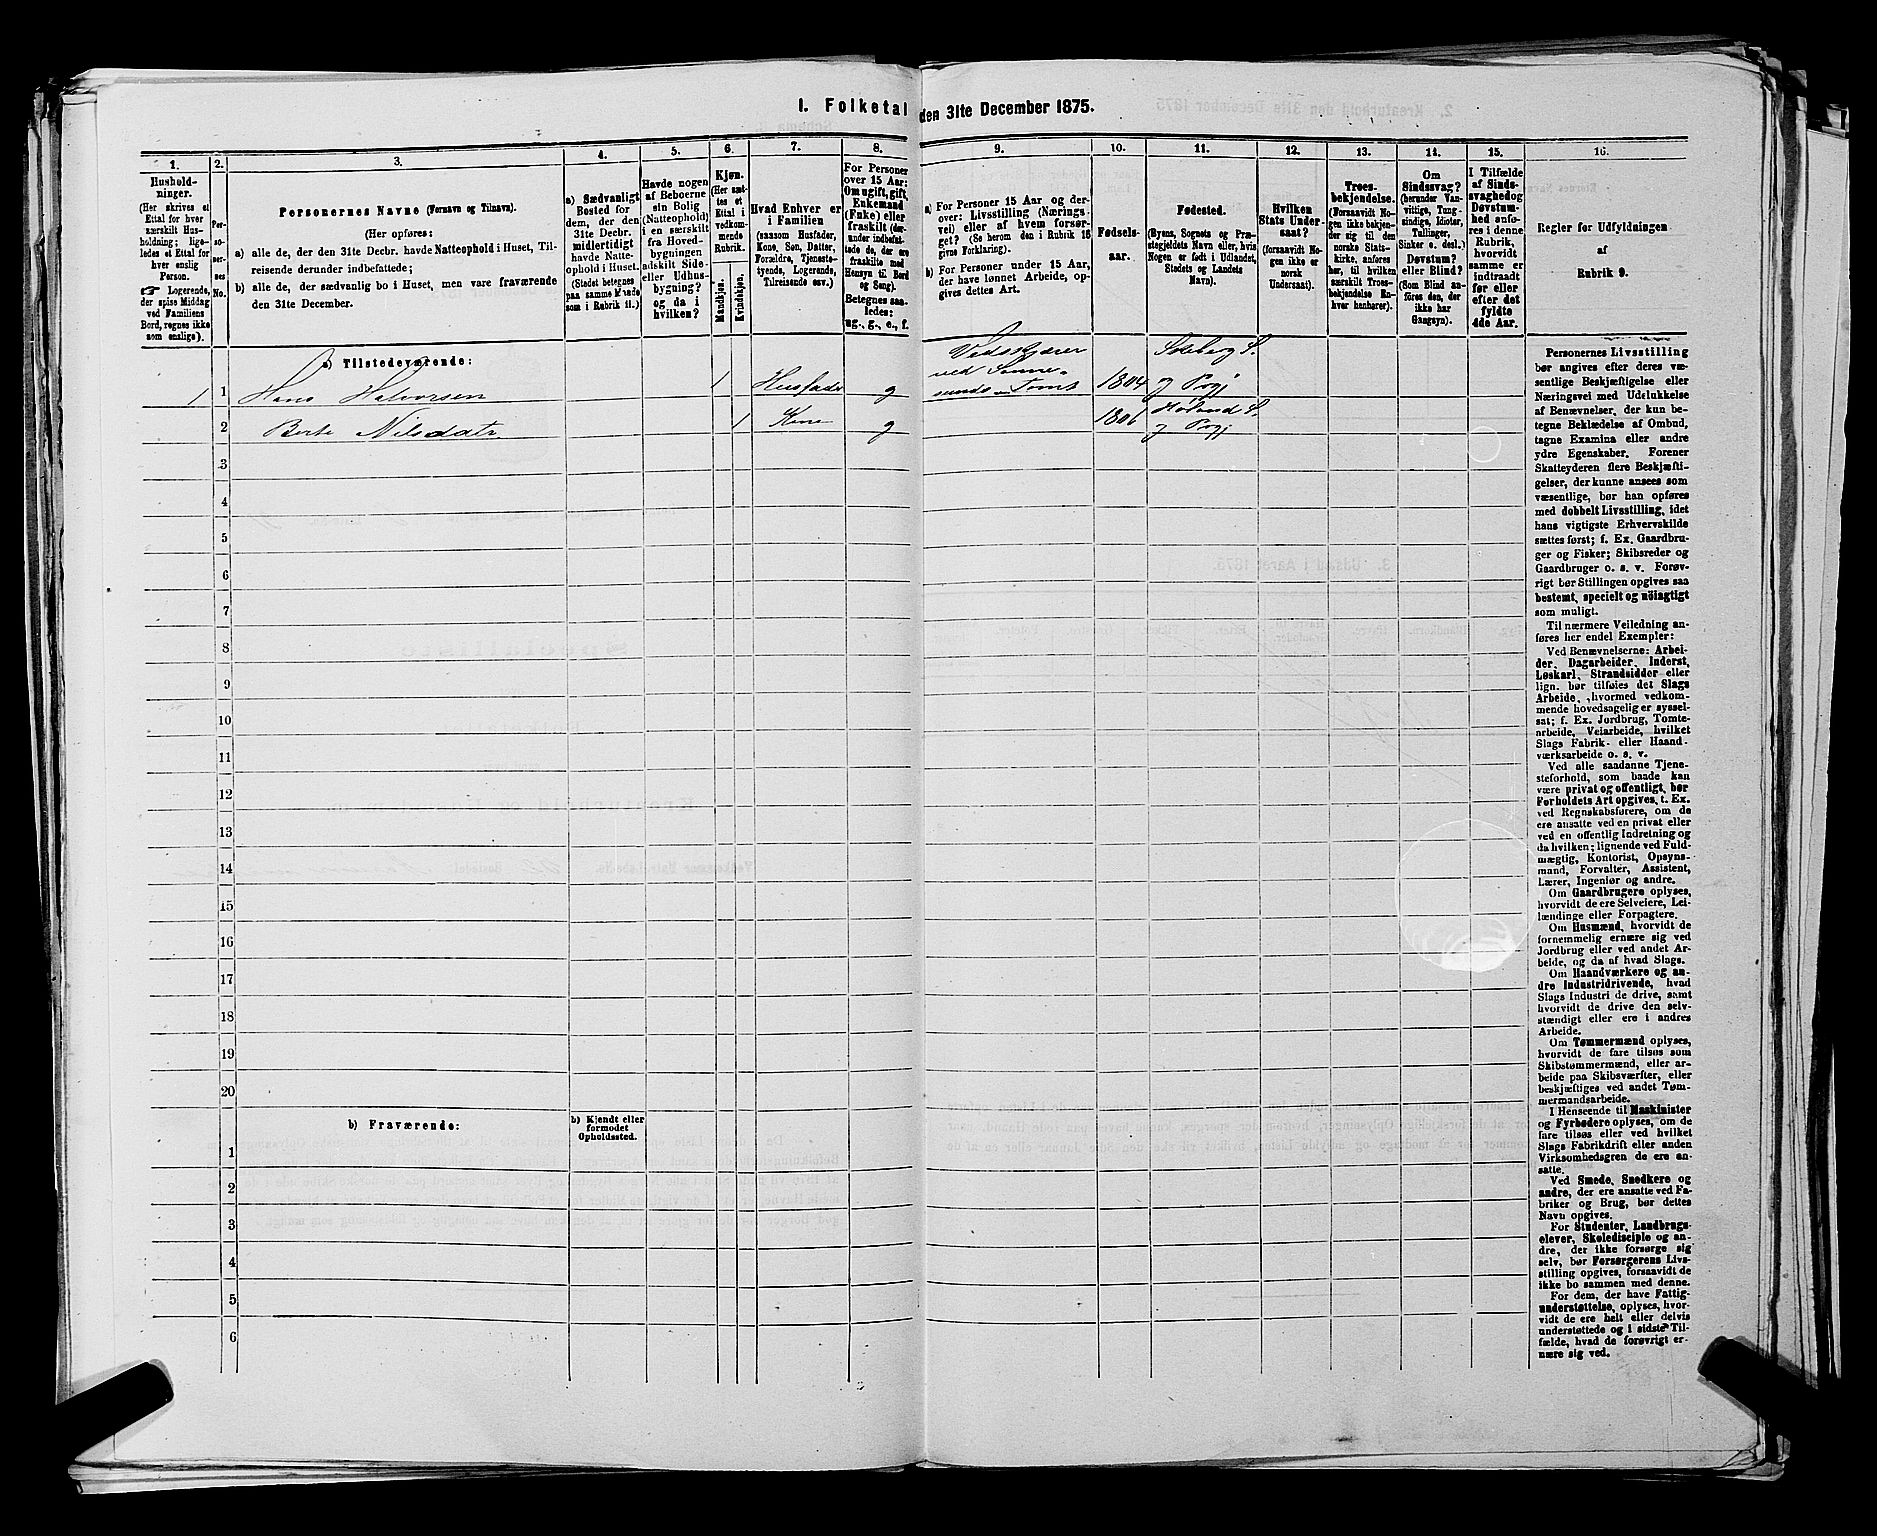 I. Folketal den 31te December 1875.
1.
2.
3.
4.
5.
6.
7.
8.
9.
10.
11.
12.
13.
14.
15.
16.
Hushold-
ninger.
(Her skrives et
Ettal for hver
særskilt Hus-
holdning; lige-
ledes et Ettal for
hver enslig
Person.
☞ Logerende,
der spise Middag
ved Familiens
Bord, regnes ikke
som enslige).
Per-
so-
ner-
nes
No.
Personernes Navne (Fornavn og Tilnavn).
(Her opføres:
a) alle de, der den 31te Decbr. havde Natteophold i Huset, Til-
reisende derunder indbefattede;
b) alle de, der sædvanlig bo i Huset, men vare fraværende
den 31te December.
a) Sædvanligt
Bosted for
dem, der den
31te Decbr.
midlertidigt
havde Natte-
ophold i Huset.
(Stedet betegnes
paa samme Maade
som i Rubrik 11.)
Havde nogen
af Beboerne
sin Bolig
(Natteophold)
i en særskilt
fra Hoved-
bygningen
adskilt Side-
eller Udhus-
bygning?
og da i
hvilken?
Kjøn.
(Her sæt-
tes et
Ettal i
vedkom-
mende
Rubrik.
Mandkjøn.
Kvindekjøn.
Hvad Enhver er
i Familien
(saasom Husfader,
Kone, Søn, Datter,
Forældre, Tjeneste-
tyende, Logerende,
Tilreisende osv.)
For Personer
over 15 Aar:
Om ugift, gift,
Enkemand
(Enke) eller
fraskilt (der-
under indbefat-
tede de, der ere
fraskilte med
Hensyn til Bord
og Seng).
Betegnes saa-
ledes:
ug., g., e., f.
a) For Personer 15 Aar og der-
over: Livsstilling (Nærings-
vei) eller af hvem forsør-
get? (Se herom den i Rubrik 16
givne Forklaring).
b) For Personer under 15 Aar,
der have lønnet Arbeide, op-
gives dettes Art.
Fødsels-
aar.
Fødested.
(Byens, Sognets og Præ-
stegjeldets Navn eller, hvis
Nogen er født i Udlandet,
Stedets og Landets
Navn).
Hvilken
Stats Under-
saat?
(forsaavidt No-
gen ikke er
norsk
Undersaat).
Troes-
bekjendelse.
(Forsaavidt No-
gen ikke bekjen-
der sig til den
norske Stats-
kirke, anføres
her, til hvilken
særskilt Troes-
bekjendelse En-
hver henhører).
Om
Sindssvag?
(herunder Van-
vittige, Tung-
sindige, Idioter,
Tullinger,
Sinker o. desl.)
Døvstum?
eller Blind?
(Som Blind an-
føres den, der
ikke har
Gangsyn).
I Tilfælde
af Sinds-
svaghed og
Døvstum-
hed anfø-
res i denne
Rubrik,
hvorvidt
samme er
indtraadt
før eller
efter det
fyldte
4de Aar.
Regler for Udfyldningen
af
Rubrik 9.
a) Tilstedeværende:
1 1 Hans Halvorsen 1 Husfader g Vedskjærer ved 1804 og Prgj
2 Berte Nilsdatr 1 Kone g 1806 Høland S. og Prgj
3
4
5
6
7
8
9
10
11
12
13
14
15
16
17
18
19
20
b) Fraværende:
b) Kjendt eller
formodet
Opholdssted.
1
2
3
4
5
6
Personernes Livsstilling
bør angives efter deres væ-
sentlige Beskjæftigelse eller
Næringsvei med Udelukkelse
af Benævnelser, der kun be-
tegne Beklædelse af Ombud,
tagne Examina eller andre
ydre Egenskaber. Forener
Skatteyderen flere Beskjæfti-
gelser, der kunne ansees som
væsentlige, bør han opføres
med dobbelt Livsstilling, idet
hans vigtigste Erhvervskilde
sættes først; f. Ex. Gaardbru-
ger og Fisker; Skibsreder og
Gaardbruger o. s. v. Forøv-
rigt bør Stillingen opgives saa
bestemt, specielt og nöiagtigt
som muligt.
Til nærmere Veiledning an-
føres her endel Exempler:
Ved Benævnelserne: Arbei-
der, Dagarbeider, Inderst,
Løskarl, Strandsidder eller
lign. bør tilføies det Slags
Arbeide, hvormed vedkom-
mende hovedsagelig er syssel-
sat; f. Ex. Jordbrug, Tomte-
arbeide, Veiarbeide, hvilket
Slags Fabrik- eller Haand-
værksarbeide o. s. v.
Ved alle saadanne Tjene-
steforhold, som baade kan
være privat og offentligt, bør
Forholdets Art opgives, t. Ex.
ved Regnskabsførere, om de
ere ansatte ved en privat eller
ved en offentlig Indretning og
da hvilken; lignende ved Fuld-
mægtig, Kontorist, Opsyns-
mand, Forvalter, Assistent,
Lærer, Ingeniør og andre.
Om Gaardbrugere oplyses,
hvorvidt de ere Selveiere, Lei-
lændinge eller Forpagtere.
Om Husmænd, hvorvidt de
fornemmelig ernære sig ved
Jordbrug eller ved andet Ar-
beide, og da af hvad Slags.
Om Haandværkere og an-
dre Industridrivende, hvad
Slags Industri de drive, samt
hvorvidt de drive den selv-
stændigt eller ere i andres
Arbeide.
Om Tømmermænd oplyses,
hvorvidt de fare tilsøs som
Skibstømmermænd, eller ar-
beide paa Skibsværfter, eller
beskjæftiges ved andet Tøm-
mermandsarbeide.
I Henseende til Maskinister
og Fyrbødere oplyses, om de
fare tilsøs eller ved hvilket
Slags Fabrikdrift eller anden
Virksomhedsgren de ere an-
satte.
Ved Smede, Snedkere og
andre, der ere ansatte ved Fa-
briker og Brug, bør dettes
Navn opgives.
For Studenter, Landbrugs-
elever, Skoledisciple og an-
dre, der ikke forsørge sig
selv, bør Forsørgerens Livs-
stilling opgives, forsaavidt de
ikke bo sammen med denne.
For dem, der have Fattig-
understøttelse, oplyses, hvor-
vidt de ere helt eller delvis
understøttede og i sidste Til-
fælde, hvad de forøvrigt er-
nære sig ved.